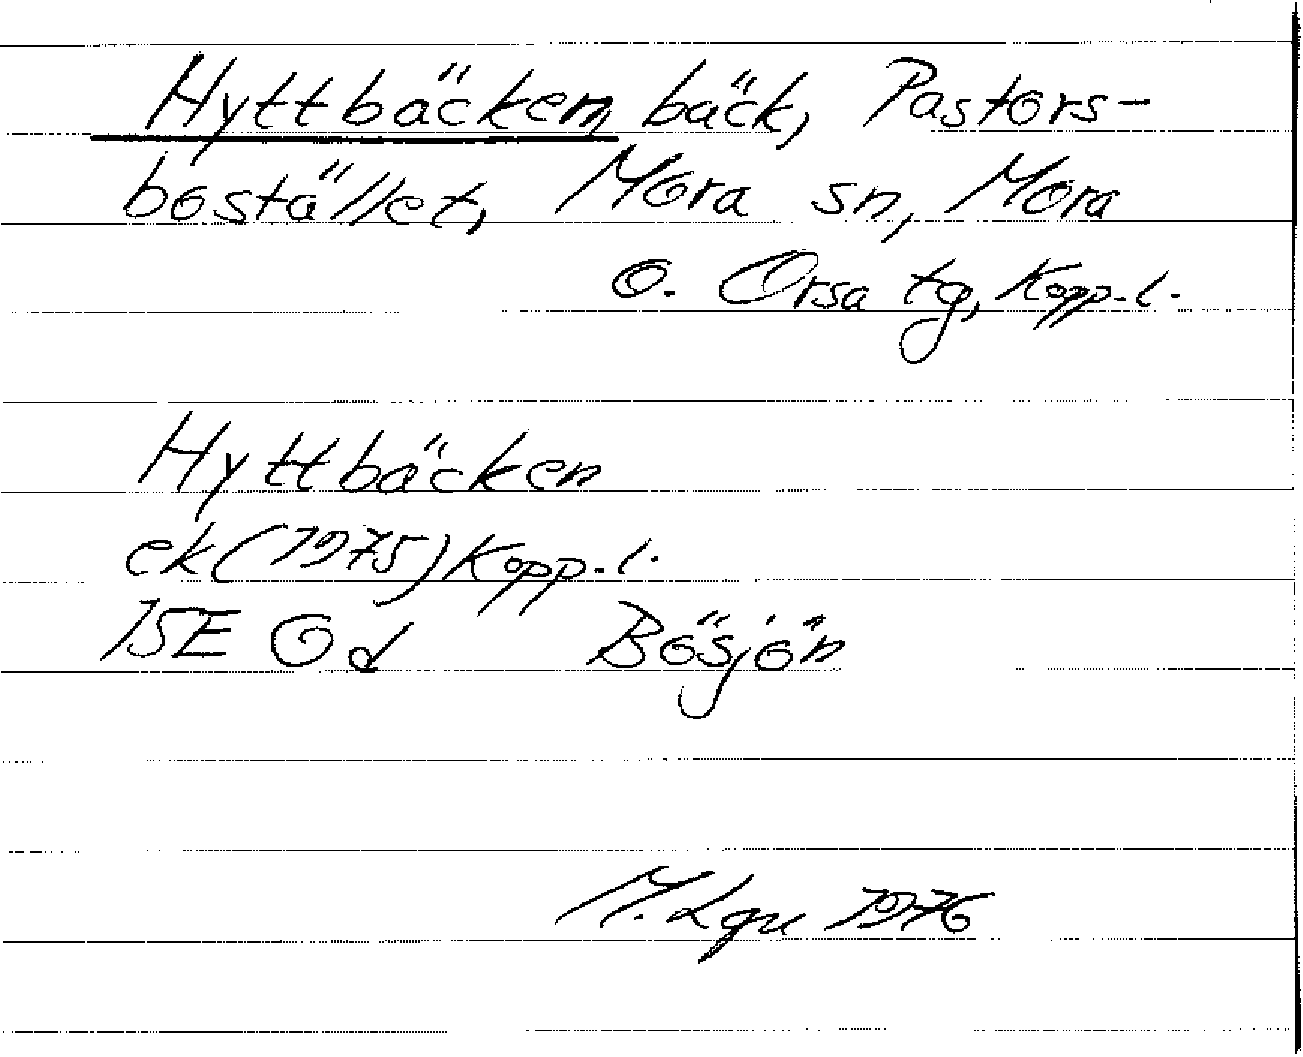 Hyttbäcken bäck, Pastors-
bostället, Mora sn, Mora
o. Orsa tg, Kopp. l.
Hyttbäcken
ek (1975) Kopp. l.
15E 0d Bösjön
M. Lgu 1976